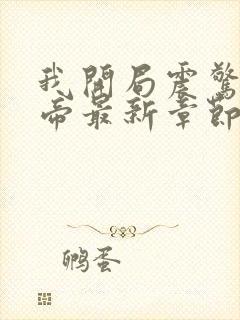 我開局震驚
帝最新章節
鸭蛋